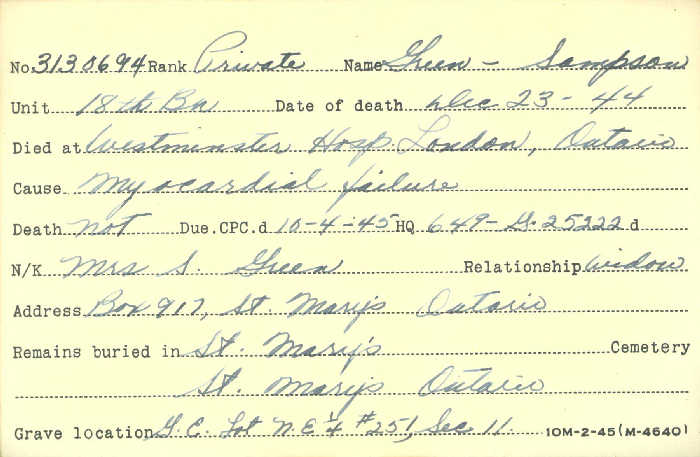 No. 3130694 Rank Private Name Green - Sampson
Unit 18th Bn Date of death Dec 23 - 44
Died at Westminster Hosp. London, Ontario
Cause Myocardial failure
Death not Due.CPC.d 10-4-45 HQ 649-G-25222 d
N/K Mrs S. Green Relationship Widow
Address Box 917, St. Mary's Ontario
Remains buried in St. Mary's Cemetery
St. Mary's Ontario
Grave location G.C. Lot N.E ¼ #251, Sec 11. 10M-2-45(M-4640)